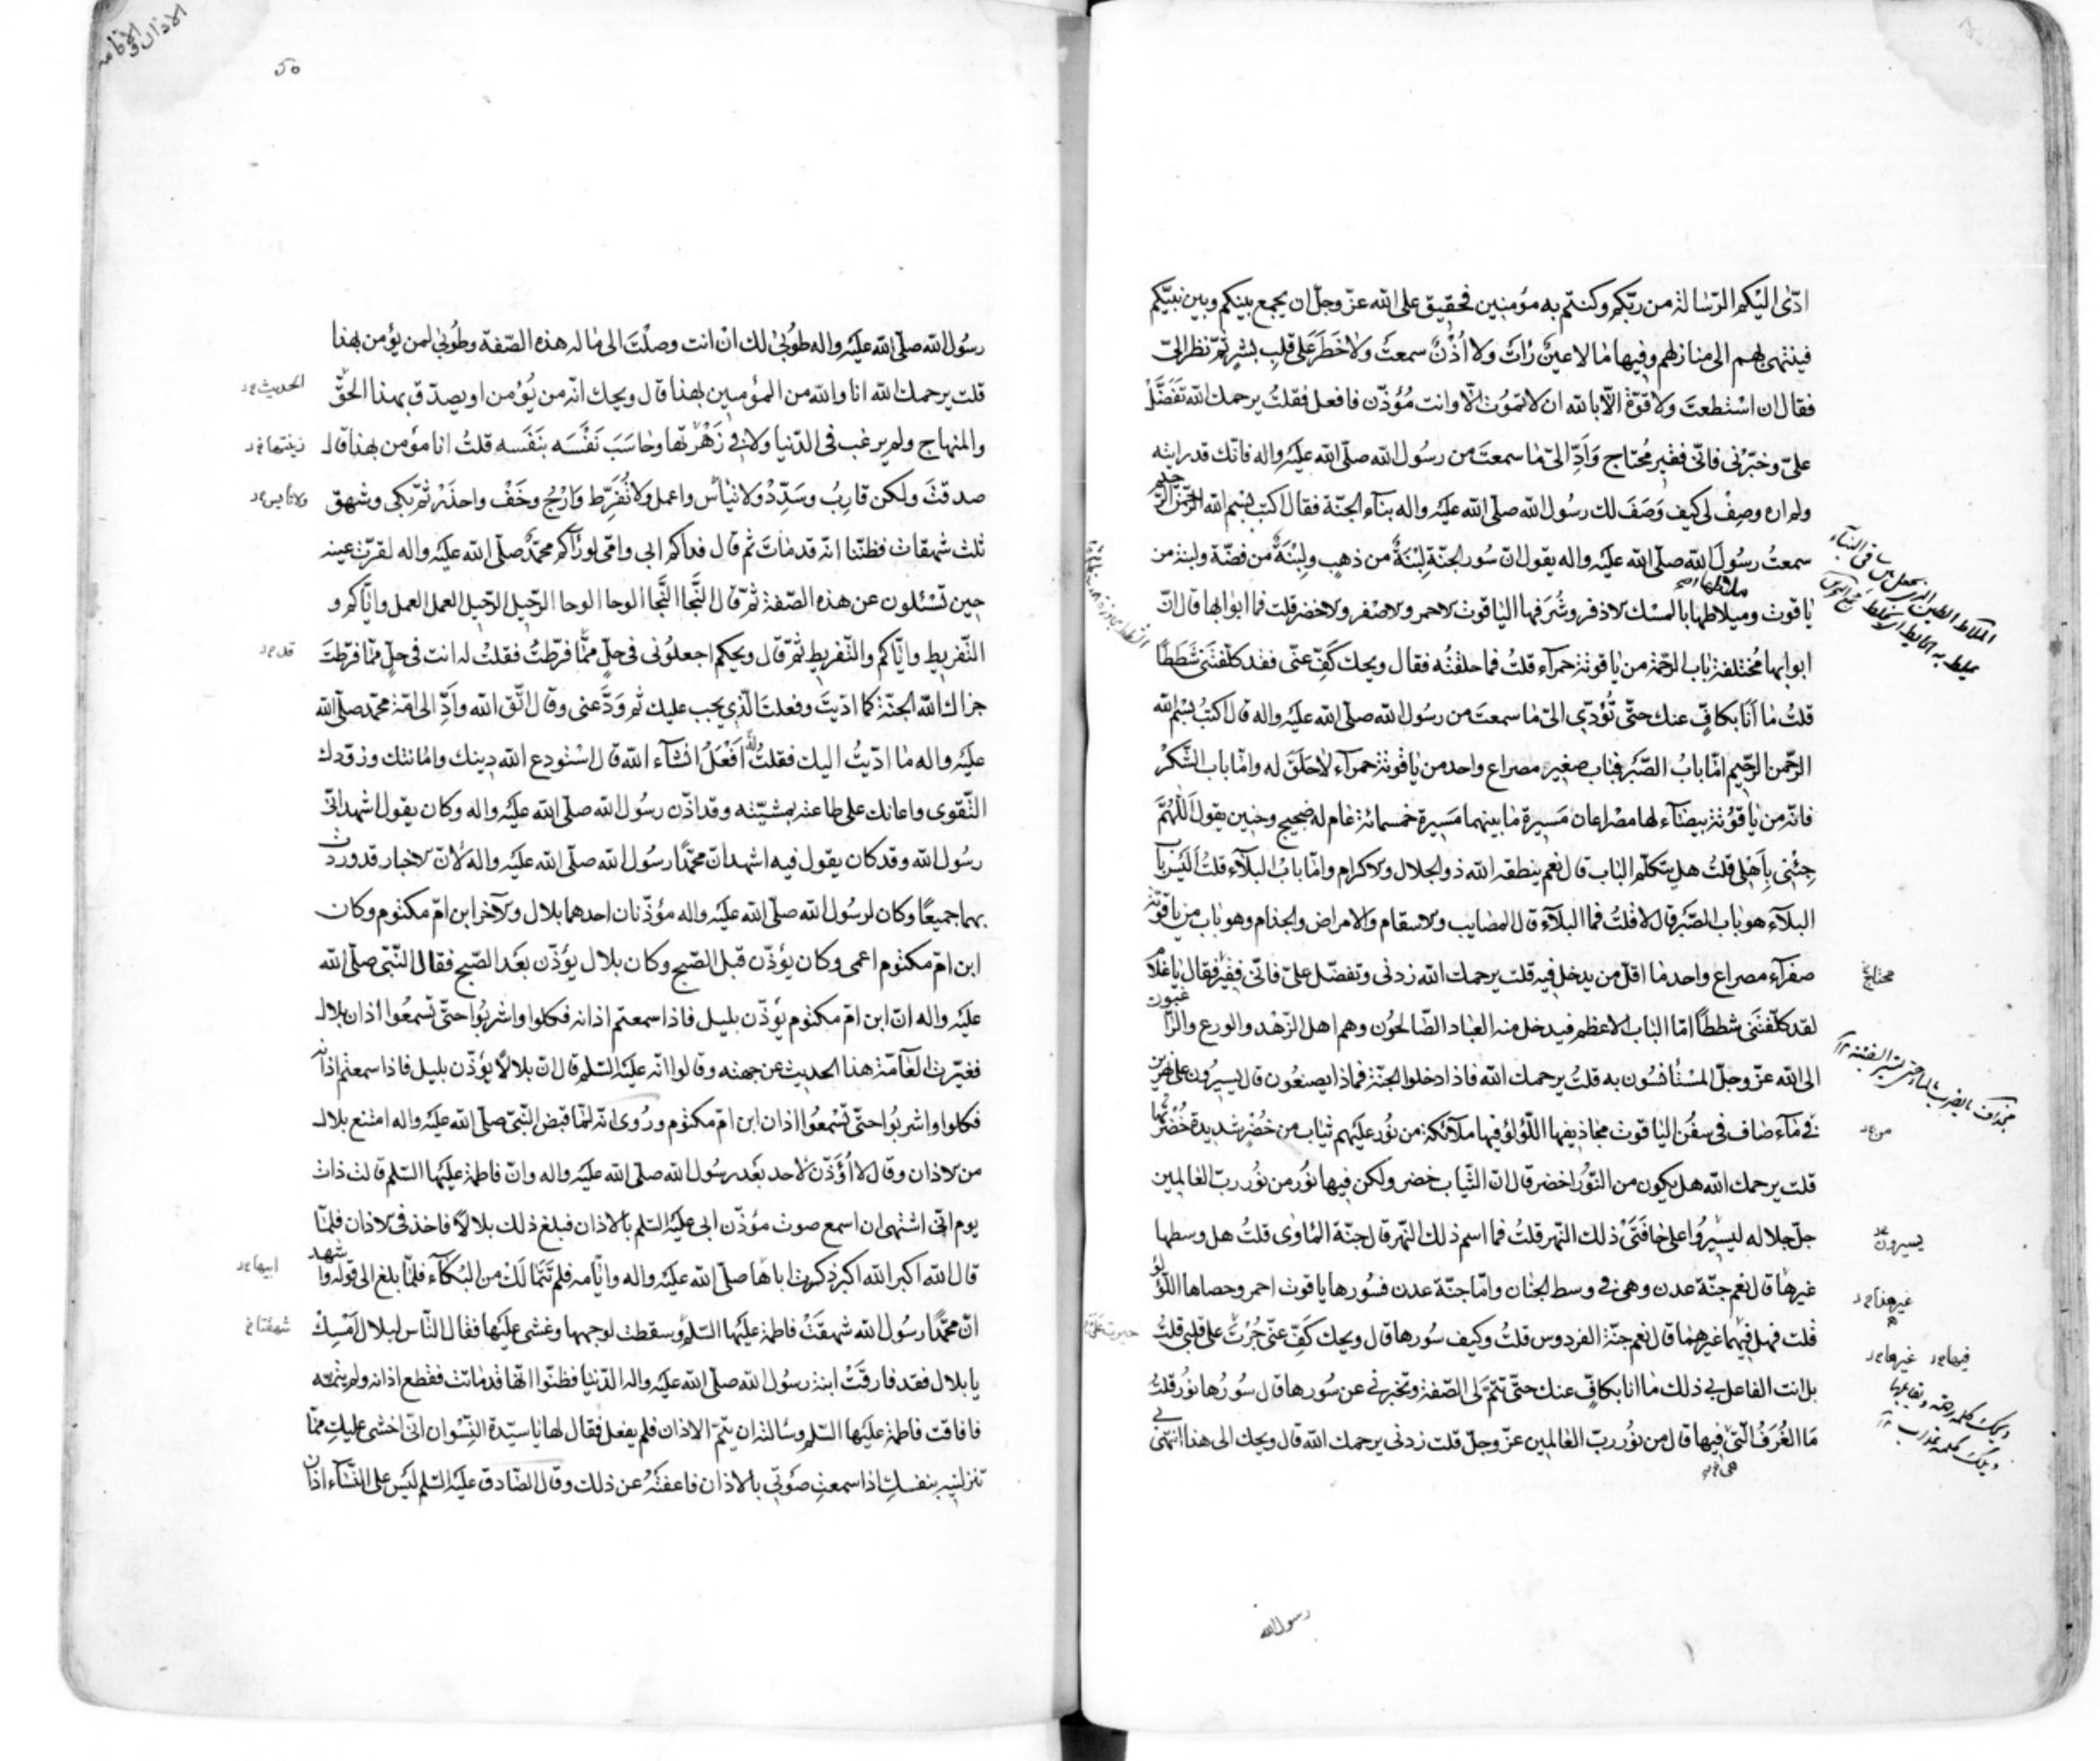 ادّى اليكم الرّسالة من ربّكم وكنتم به مؤمنين فحقيق على الله عزّ وجلّ ان يجمع بينكم وبين نبيّكم
فينتهى بهم الى منازلهم وفيها ما لا عينٌ رات ولا اُذُنٌ سمعت ولا خَطَرَ على قلبِ بشرٍ ثمّ نظر الىّ
فقال ان استطعتَ ولا قوّة الّا بالله ان لا تموت الّا وانت مُؤذّن فافعل فقلتُ يرحمك الله تَفَضَّلْ
علىّ وخبّرنى فانّى فقير مُحتاج وَاَدِّ الىّ ما سمعتَ من رسُول الله صلّى الله عليه واله فانّك قد رايته
ولم اره وصِفْ لى كيف وَصَفَ لك رسُول الله صلّى الله عليه واله بنآء الجنّة فقال اكتب بسم الله الرّحمن الرّحيم
سمعتُ رسُولَ الله صلّى الله عليه واله يقول انّ سُور الجنّة لِبْنَةٌ من ذهبٍ ولِبْنَةٌ من فضّة ولبنة من
ياقوت وميلاطها بالمسْك الاذفر وشُرَفها الياقوت الاحمر والاصْفر والاخضر قلت فما ابوابها قال انّ
ابوابها مُختلفة باب الرّحمة من ياقوتة حمرآء قلتُ فما حلقتُه فقال ويحك كَفِّ عنّى فقد كلّفتَنى شَطَطًا
قلتُ ما اَنَا بكافٍّ عنك حتّى تُؤدّى الىّ ما سمعتَ من رسُول الله صلّى الله عليه واله قال اكتبْ بسْم الله
الرّحمن الرّحيم امّا بابُ الصّبر فباب صغير مصراع واحد من ياقوتة حمرآء لا حلَقَ له وامّا باب الشّكرْ
فانّه من ياقوُتة بيضآء لها مصْراعان مَسيرة ما بينهما مَسيرة خمسمائة عام له ضجيج وحنين يقول اَللّٰهُمَّ
جِئْنى باَهْلى قلتُ هل يتكلّم الباب قال نعم ينطقه الله ذو الجلال والاكرام وامّا بابُ البلآء قلتُ اَلَيْسَ بابُ
البلآء هو باب الصّبر قال لا قلتُ فما البلآء قال المصايب والاسقام والامراض والجذام وهو باب من ياقوتة
صفرآء مصراع واحد ما اقلّ من يدخل فيه قلت يرحمك الله زدنى وتفضّل علىّ فانّى فقير فقال يا غلام
لقد كلّفتنى شططًا امّا الباب الاعظم فيدخل منه العباد الصّالحُون وهم اهل الزّهْد والورع والرّاغبون
الى الله عزّ وجلّ المسْتأنسُون به قلتُ يرحمك الله فاذا دخلوا الجنّة فماذا يصنعُون قال يسيرُون على نهرين
فى مآء صاف فى سفُن الياقوت مجاذيفها اللّؤلؤ فيها ملآئكة من نُور عليهم ثياب من خضر شديدة خُضْرتُها
قلت يرحمك الله هل يكون من النّوُر اخضر قال انّ الثّياب خضر ولكن فيها نُور من نُور ربّ العالمين
جلّ جلاله ليسيرُوا على حافَتَىْ ذلك النّهر قلتُ فما اسم ذلك النّهر قال جنّة الماوى قلتُ هل وسطها
غيرها قال نعم جنّة عدن وهى فى وسط الجنان وامّا جنّة عدن فسُورها ياقوت احمر وحصاها اللّؤلؤ
قلت فهل فيهما غيرهما قال نعم جنّة الفردوس قلتُ وكيف سُورها قال ويحك كَفِّ عنّى جُرْتَ على قلبى قلتُ
بل انت الفاعل بى ذلك ما انا بكافٍّ عنك حتّى تتمّ لى الصّفة وتخبرنى عن سُورها قال سُورُها نُور قلتُ
مَا الغُرَفُ الّتى فيها قال من نوُر ربّ العالمين عزّ وجلّ قلت زدنى يرحمك الله قال ويحك الى هذا انتهى بى
ملاطها
محتاج
من
يسيرون
غيرهذا
فيها غيرها
هى
ويحك كلمة رحمة
رسول الله
الاذان والاقامة
٥٠
رسُول الله صلّى الله عليه واله طُوبىٰ لك انْ انت وصلْتَ الى ما له هذه الصّفة وطُوبىٰ لمن يؤمن بهذا
قلت يرحمك الله انا والله من المؤمنين بهذا قال ويحك انّه من يُؤمن او يصدّق بهذا الحقّ
والمنهاج ولم يرغب فى الدّنيا ولا فى زَهْرتها وحاسَبَ نَفْسَه بنَفْسه قلتُ انا مؤمن بهذا قال
صدقتَ ولكن قارِبْ وسَدِّدْ ولا تيأسْ واعمل ولا تُفَرِّط وَارْجُ وخَفْ واحذَرْ ثمّ بكى وشهق
ثلث شهقات فظننّا انّه قد ماتَ ثم قال فداكم ابى وامّى لو رآكم محمّدٌ صلّى الله عليه واله لقرّت عينه
حين تسْئلون عن هذه الصّفة ثمّ قال النّجا النّجا الوحا الوحا الرّحيل الرّحيل العمل العمل وايّاكم و
التّفريط وايّاكم والتّفريط ثمّ قال ويحكم اجعلوُنى فى حلّ ممّا فرّطتُ فقلتُ له انت فى حلّ ممّا فرّطتَ
جزاك الله الجنّة كما ادّيتَ وفعلتَ الّذى يجب عليك ثم وَدَّعنى وقال اتّق الله وادِّ الى امّة محمّد صلّى الله
عليه واله ما ادّيتُ اليك فقلتُ له اَفْعَلُ انشآء الله قال استودع الله دينك وامانتك وزوّدك
التّقوى واعانك على طاعته بمشيّته وقد اذّن رسُول الله صلّى الله عليه واله وكان يقول اشهد انّى
رسُول الله وقد كان يقول فيه اشهد انّ محمّدًا رسُول الله صلّى الله عليه واله لانّ الاخبار قد وردت
بهما جميعًا وكان لرسُول الله صلّى الله عليه واله مؤذّنان احدهما بلال والآخر ابن امّ مكتوم وكان
ابن امّ مكتوم اعمى وكان يؤذّن قبل الصّبح وكان بلال يؤذّن بعَد الصّبح فقال النّبىّ صلّى الله
عليه واله انّ ابن امّ مكتوم يؤذّن بليل فاذا سمعتم اذانه فكلوا واشربوُا حتّى تسمعُوا اذان بلال
فغيّرت العامّة هذا الحديث عن جهته وقالوا انّه عليه السّلم قال انّ بلالًا يؤذّن بليل فاذا سمعتم اذانه
فكلوا واشربوُا حتّى تسْمعُوا اذان ابن امّ مكتوم ورُوى انّه لمّا قبض النّبىّ صلّى الله عليه واله امتنع بلال
من الاذان وقال لا اُؤذّن لاحد بعَد رسُول الله صلّى الله عليه واله وانّ فاطمة عليها السّلم قالت ذات
يوم انّى اشتهى ان اسمع صوت مؤذّن ابى عليه السّلم بالاذان فبلغ ذلك بلالًا فاخذ فى الاذان فلمّا
قال الله اكبر الله اكبر ذكرت اباها صلّى الله عليه واله وايّامه فلم تَتَمالَكْ من البُكآء فلمّا بلغ الى قوله واشهد
انّ محمّدًا رسُول الله شهقَتْ فاطمة عليها السّلم وسقطت لوجهها وغشى عليْها فقال النّاس لبلال اَمْسِكْ
يا بلال فقد فارقَتْ ابنة رسُول الله صلّى الله عليه واله الدّنيا فظنّوا انّها قد ماتت فقطع اذانه ولم يتمّه
فافاقت فاطمة عليها السّلم وسألته ان يتمّ الاذان فلم يفعل فقال لها يا سيّدة النّسْوان انّى اخشى عليكِ ممّا
تنزلينه بنفسكِ اذا سمعتِ صَوْتى بالاذان فاعفتْهُ عن ذلك وقال الصّادق عليه السّلم ليْس على النّسآء اذان
الحديث
زينتها
ولا تايس
قد
ابيها
شهقتا